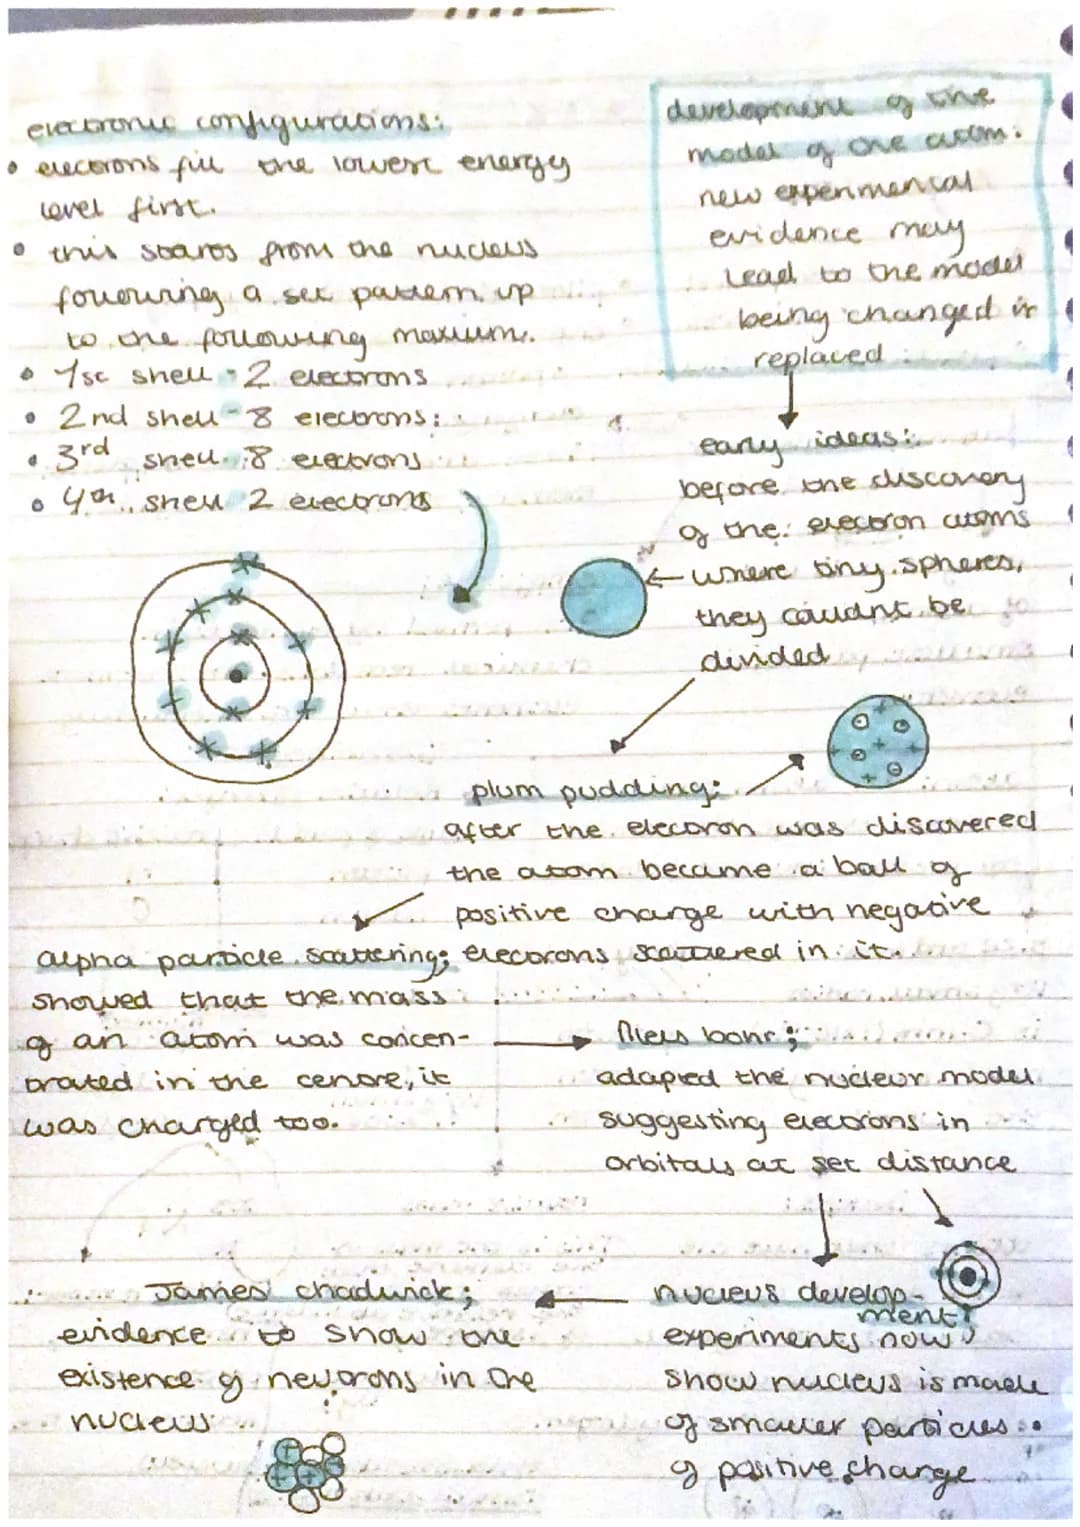 electronic configurations:
• electrons fill the lowest energy
level first.
• this starts from the nucleus
following a set pattern up
to the following maxium.
• 1st shell - 2 electrons
• 2nd shell - 8 electrons:
• 3rd shell - 8 electrons
• 4th shell 2 electrons
development of the
model of the atom:
new experimental
evidence may
lead to the model
being changed ir
replaced
early ideas:
before the discovery
of the electron atoms
where tiny spheres,
they couldnt be
divided
plum pudding:
after the electron was discovered
the atom became a ball of
positive charge with negative
electrons scattered in it.
alpha particle scattering;
showed that the mass
of an atom was concen-
trated in the centre, it
was charged too.
Niels bohr;
adapted the nuclear model
suggesting electrons in
orbitals at set distance
nucleus develop-
ment;
experiments now
show nucleus is made
of smaller particles
of positive charge
James chadwick;
evidence to show the
existence of neutrons in the
nucleus